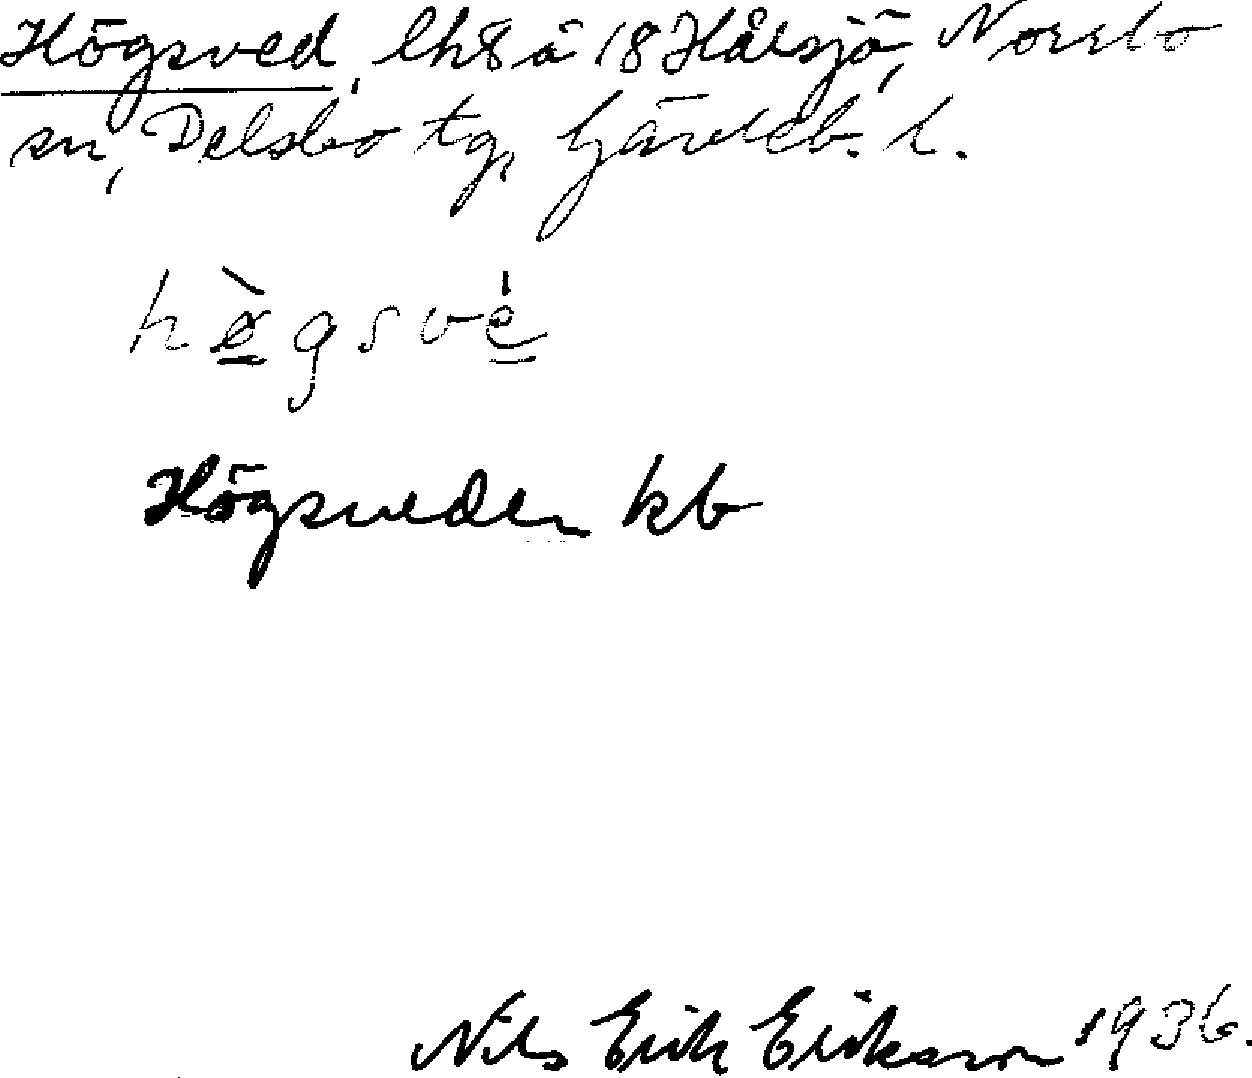 Högsved, lh8 å 18 Hålsjö, Norrbo
sn, Delsbo tg, Gävleb. l.
hø̀gsvé
Högsveden kb
Nils Erik Eriksson 1936.